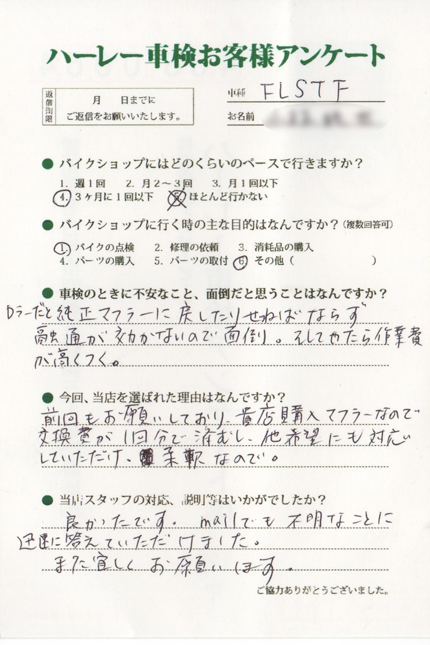 ハーレー車検お客様アンケート
返信期限
月 日までに
ご返信をお願いいたします。
車種 FLSTF
お名前
● バイクショップにはどのくらいのペースで行きますか？
1. 週1回 2. 月2〜3回 3. 月1回以下
4. 3ヶ月に1回以下 5. ほとんど行かない
● バイクショップに行く時の主な目的はなんですか？(複数回答可)
1. バイクの点検 2. 修理の依頼 3. 消耗品の購入
4. パーツの購入 5. パーツの取付 6. その他( )
● 車検のときに不安なこと、面倒だと思うことはなんですか？
Dラーだと純正マフラーに戻したりせねばならず
融通が効かないので面倒。そしてやたら作業費
が高くつく。
● 今回、当店を選ばれた理由はなんですか？
前回もお願いしており、貴店購入マフラーなので
交換費が1回分で済むし、他希望にも対応
していただけ、柔軟なので。
● 当店スタッフの対応、説明等はいかがでしたか？
良かったです。mailでも不明なことに
迅速に答えていただけました。
また宜しくお願いします。
ご協力ありがとうございました。